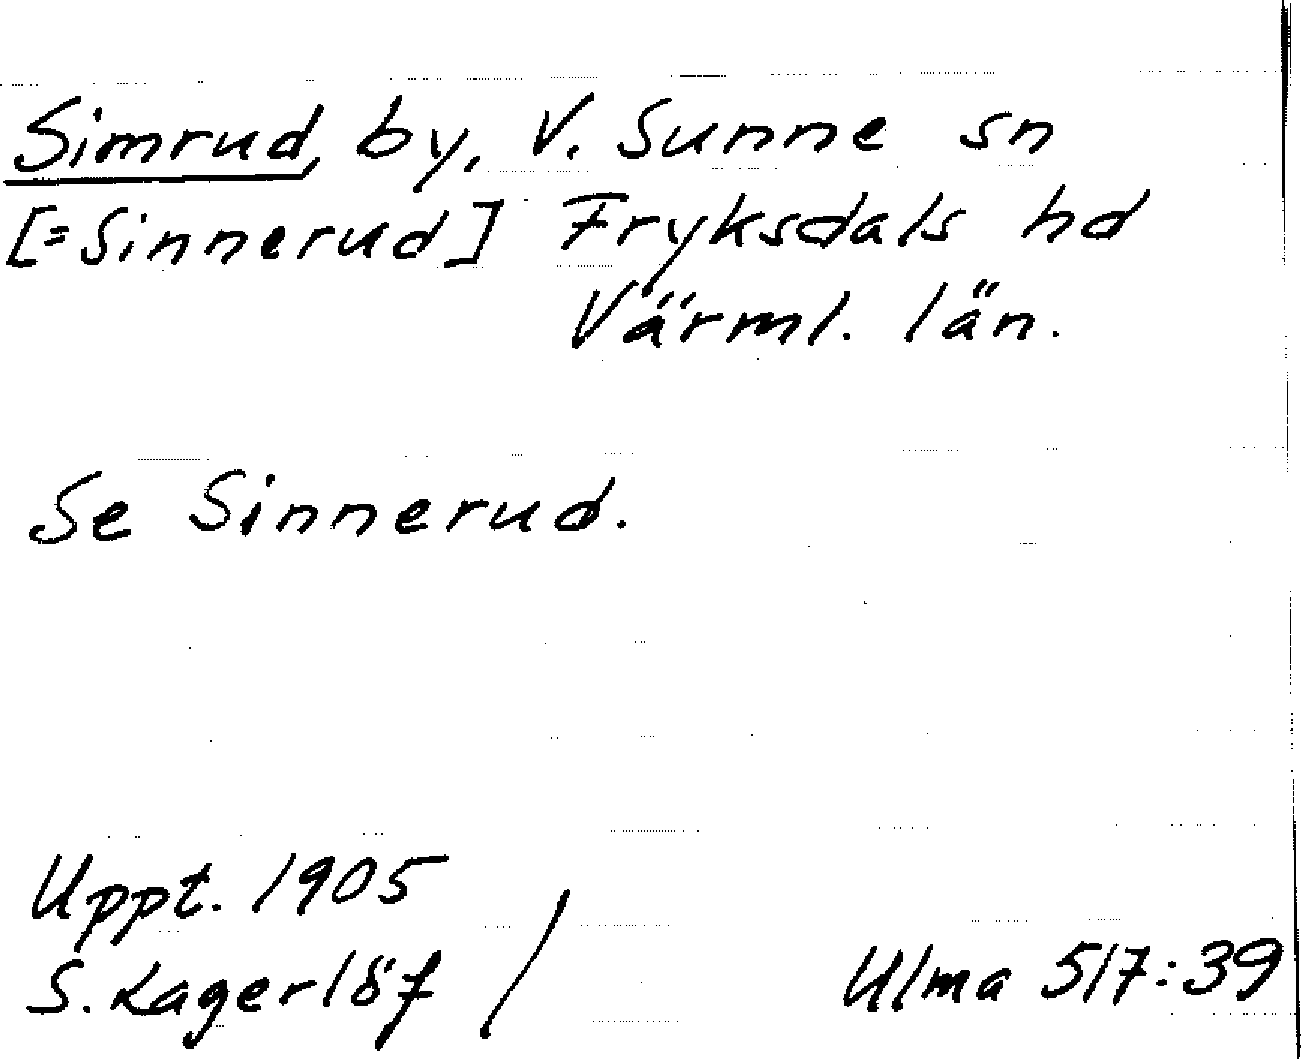 Simrud, by, V. Sunne sn
[=Sinnerud] Fryksdals hd
Värml. län.
Se Sinnerud.
Uppt. 1905
S. Lagerlöf / Ulma 517:39